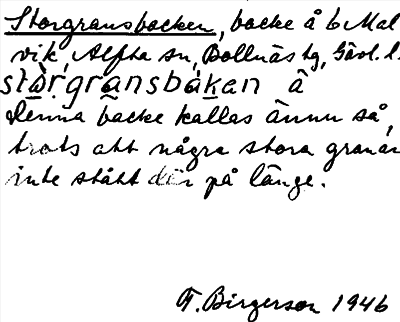 Storgransbacken, backe å 6 Mal
vik, Alfta sn, Bollnäs tg, Gävl. l.
stò̱rgra̱nsbáḵan â
Denna backe kallas ännu så,
trots att några stora granar
inte stått där på länge.
F. Birgerson 1946